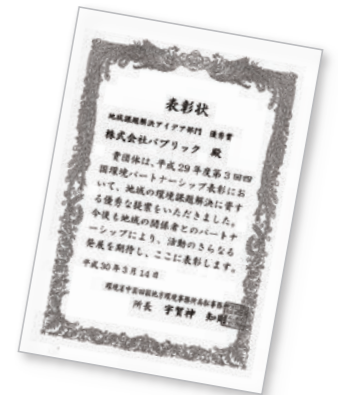 表彰状
地域課題解決アイデア部門 優秀賞
株式会社パブリック 殿
貴団体は、平成29年度第3回四
国環境パートナーシップ表彰にお
いて、地域の環境課題解決に資す
る優秀な提案をいただきました。
今後も地域の関係者とのパートナ
ーシップにより、活動のさらなる
発展を期待し、ここに表彰します。
平成30年3月14日
環境省中国四国地方環境事務所高松事務所
所長 宇賀神 知則